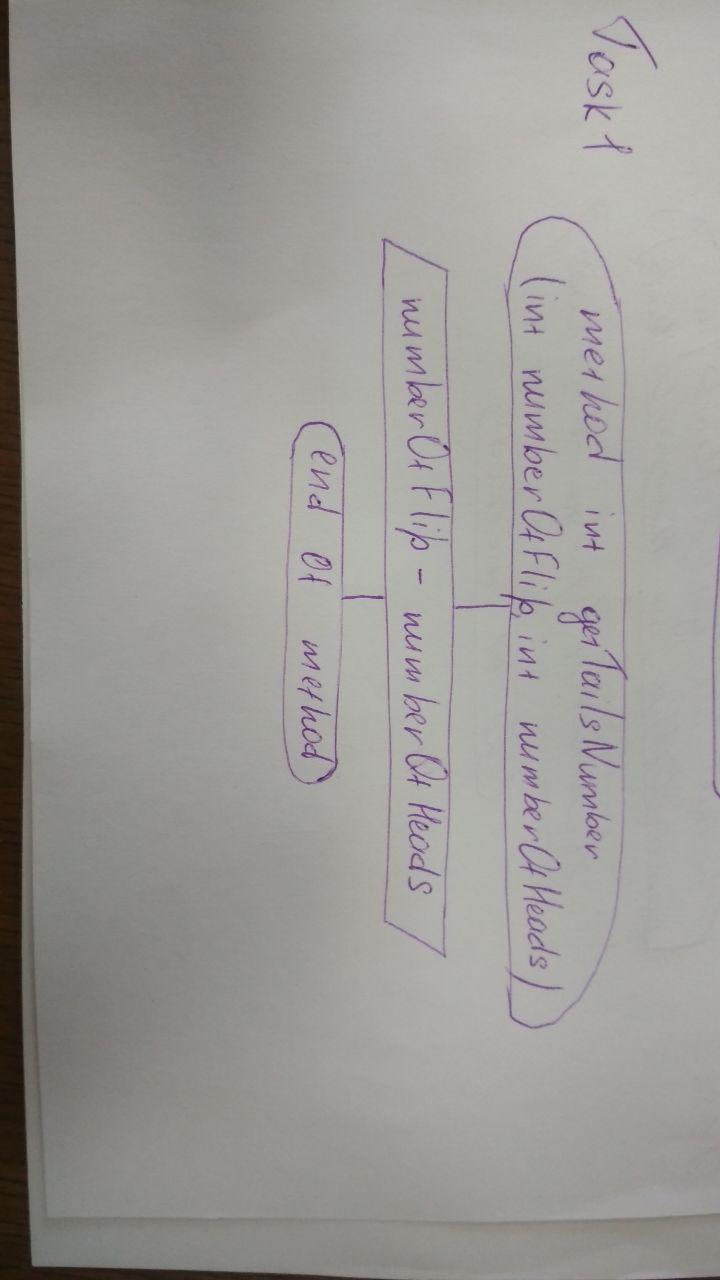 Task 1
method int getTailsNumber
(int numberOfFlip, int numberOfHeads)
numberOfFlip - numberOfHeads
end of method